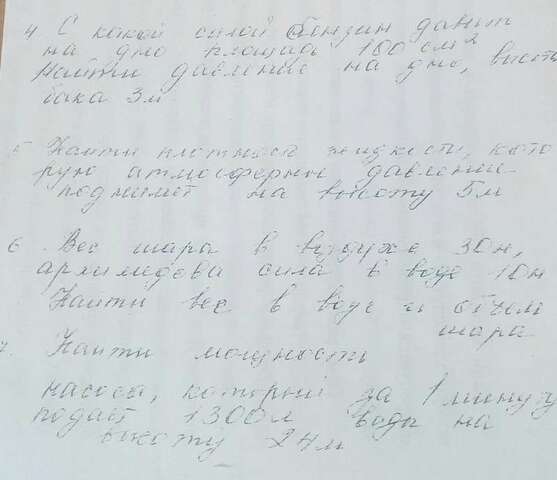 4 С какой силой бензин давит
на дно площад 100 см²
Найти давление на дно, высот
бака 3м
5 Найти плотность жидкости, кото
рую атмосферное давление
поднимет на высоту 5м
6. Вес шара в воздухе 30н,
архимедова сила в воде 10н
Найти вес в воде и объем
шара
7. Найти мощность
насоса, который за 1 минуту
подает 1300л воды на
высоту 24м